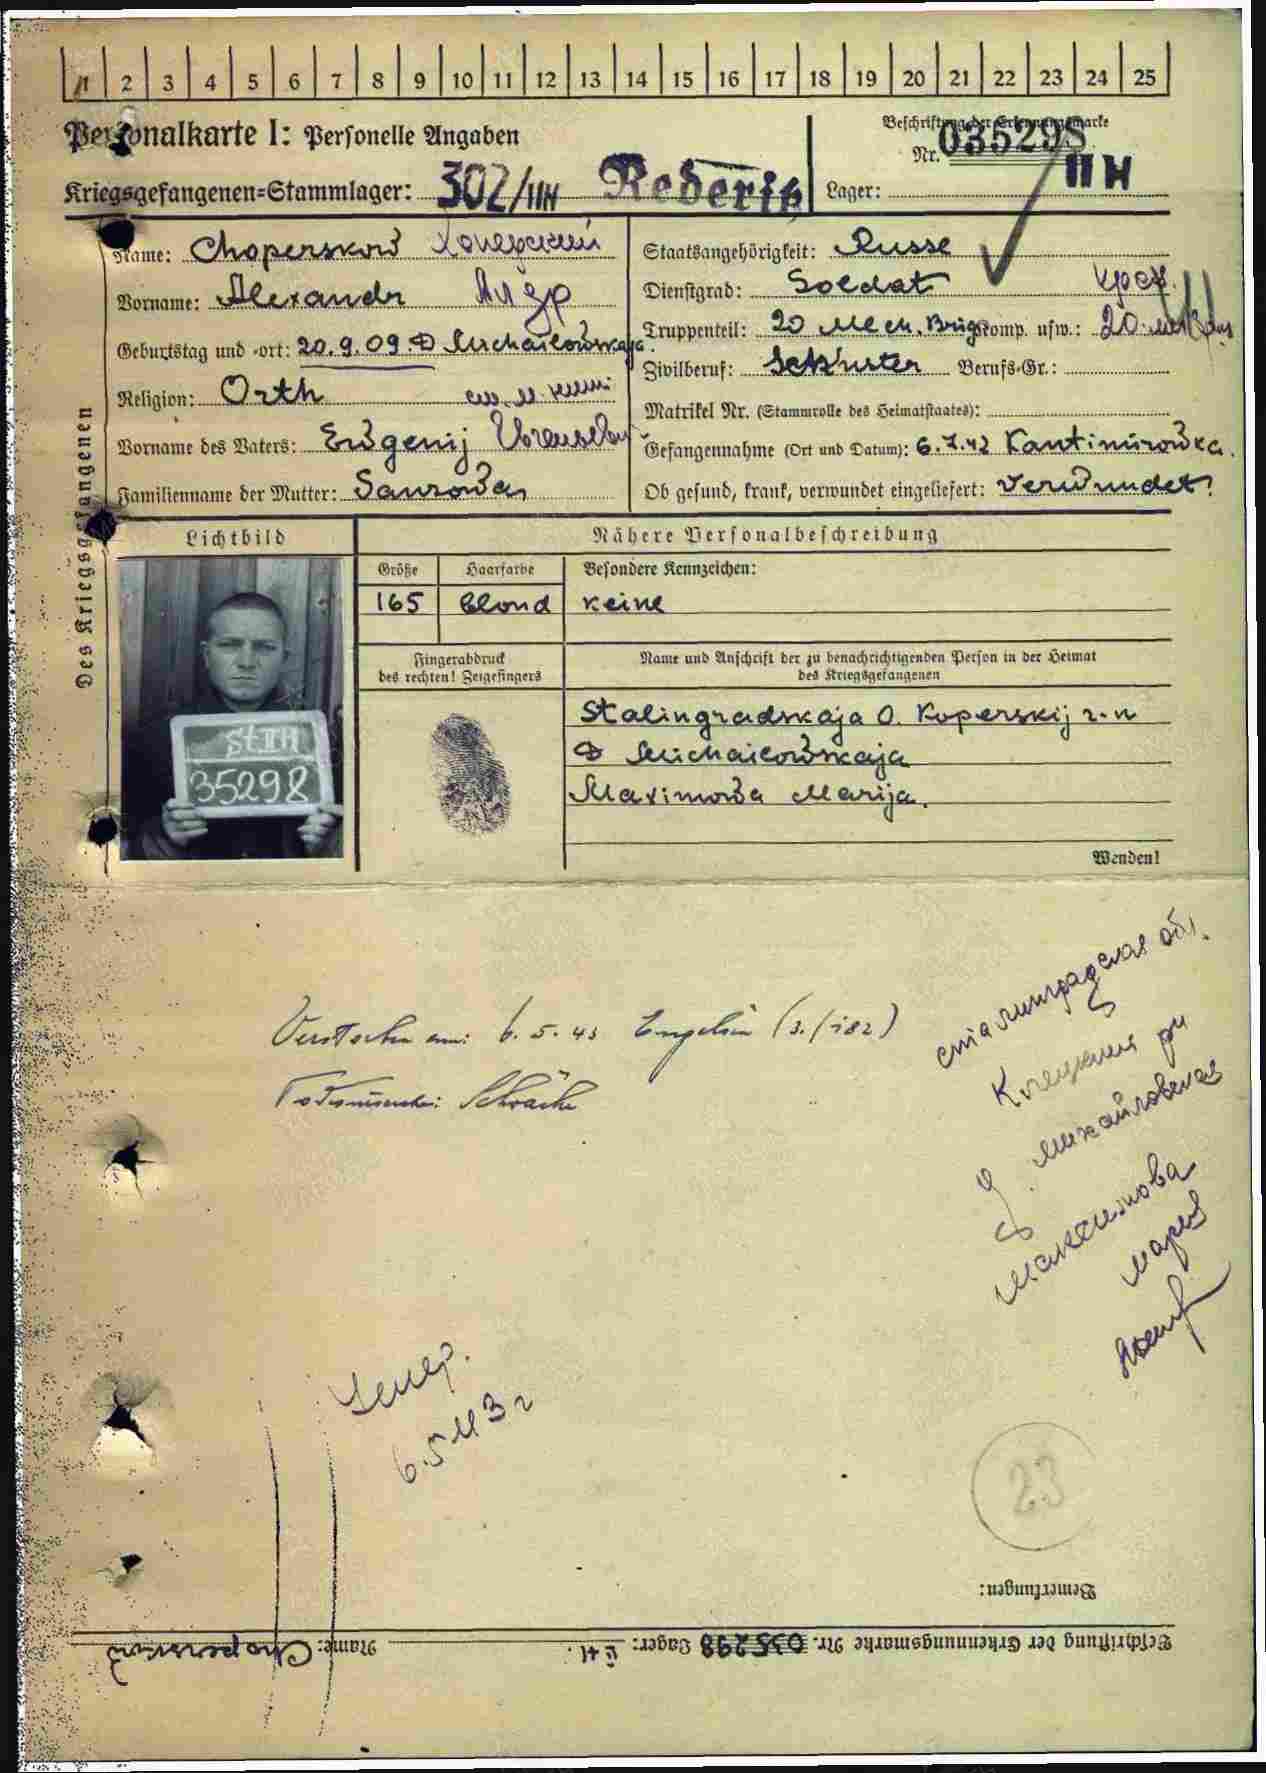 1 2 3 4 5 6 7 8 9 10 11 12 13 14 15 16 17 18 19 20 21 22 23 24 25
Personalkarte I: Personelle Angaben
Beschriftung der Erkennungsmarke
Nr. 035298
Kriegsgefangenen=Stammlager: 302/IIH Rederitz
Lager: II H
Des Kriegsgefangenen
Name: Choperskow
Vorname: Alexandr
Geburtstag und -ort: 20.9.09. D Michailowskaja.
Religion: Orth
Vorname des Vaters: Ewgenij
Familienname der Mutter:
Staatsangehörigkeit: Russe
Dienstgrad: Soldat
Truppenteil: 20 Mech. Brig Komp. usw.: 20
Zivilberuf: Berufs-Gr.:
Matrikel Nr. (Stammrolle des Heimatstaates):
Gefangennahme (Ort und Datum): 6.7.42 Kantimirowka.
Ob gesund, krank, verwundet eingeliefert: verwundet
Lichtbild
St II H
35298
Nähere Personalbeschreibung
Größe Haarfarbe Besondere Kennzeichen:
165 blond keine
Fingerabdruck
des rechten! Zeigefingers
Name und Anschrift der zu benachrichtigenden Person in der Heimat
des Kriegsgefangenen
Stalingradskaja O. Koperskij r-n
D Michailowskaja
Maximowa Marija.
Wenden!
сталинградская обл.
михайловская
Максимова
Мария
Verstorben am: 6.5.43
Todesursache: Schwäche
Умер.
6.5 43 г
23
Bemerkungen:
Beschriftung der Erkennungsmarke Nr. 035298 Lager: II H. Name: